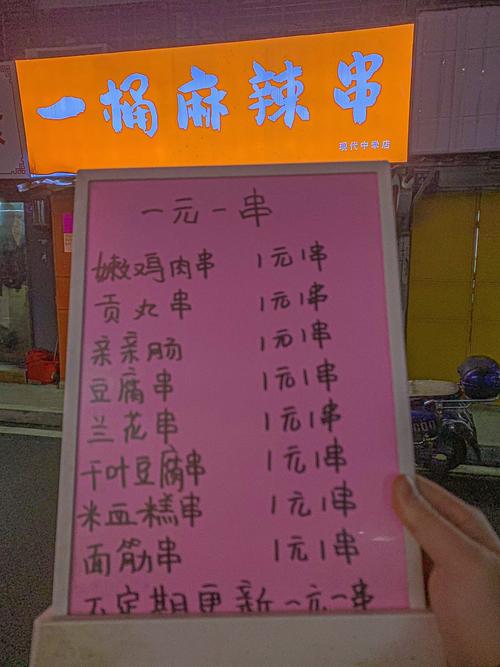 一桶麻辣串
现代中学店
一元一串
嫩鸡肉串 1元1串
贡丸串 1元1串
亲亲肠 1元1串
豆腐串 1元1串
兰花串 1元1串
千叶豆腐串 1元1串
米血糕串 1元1串
面筋串 1元1串
不定期更新一元一串